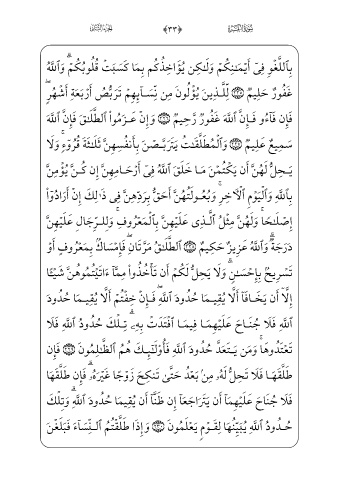 سُورَةُ البَقَرَة ﴿٣٣﴾ الجُزءُ الثَّانِي
بِٱللَّغْوِ فِىٓ أَيْمَـٰنِكُمْ وَلَـٰكِن يُؤَاخِذُكُم بِمَا كَسَبَتْ قُلُوبُكُمْ ۗ وَٱللَّهُ
غَفُورٌ حَلِيمٌ لِّلَّذِينَ يُؤْلُونَ مِن نِّسَآئِهِمْ تَرَبُّصُ أَرْبَعَةِ أَشْهُرٍ ۖ
فَإِن فَآءُو فَإِنَّ ٱللَّهَ غَفُورٌ رَّحِيمٌ وَإِنْ عَزَمُوا۟ ٱلطَّلَـٰقَ فَإِنَّ ٱللَّهَ
سَمِيعٌ عَلِيمٌ وَٱلْمُطَلَّقَـٰتُ يَتَرَبَّصْنَ بِأَنفُسِهِنَّ ثَلَـٰثَةَ قُرُوٓءٍ ۚ وَلَا
يَحِلُّ لَهُنَّ أَن يَكْتُمْنَ مَا خَلَقَ ٱللَّهُ فِىٓ أَرْحَامِهِنَّ إِن كُنَّ يُؤْمِنَّ
بِٱللَّهِ وَٱلْيَوْمِ ٱلْـَٔاخِرِ ۚ وَبُعُولَتُهُنَّ أَحَقُّ بِرَدِّهِنَّ فِى ذَٰلِكَ إِنْ أَرَادُوٓا۟
إِصْلَـٰحًا ۚ وَلَهُنَّ مِثْلُ ٱلَّذِى عَلَيْهِنَّ بِٱلْمَعْرُوفِ ۚ وَلِلرِّجَالِ عَلَيْهِنَّ
دَرَجَةٌ ۗ وَٱللَّهُ عَزِيزٌ حَكِيمٌ ٱلطَّلَـٰقُ مَرَّتَانِ ۖ فَإِمْسَاكٌۢ بِمَعْرُوفٍ أَوْ
تَسْرِيحٌۢ بِإِحْسَـٰنٍ ۗ وَلَا يَحِلُّ لَكُمْ أَن تَأْخُذُوا۟ مِمَّآ ءَاتَيْتُمُوهُنَّ شَيْـًٔا
إِلَّآ أَن يَخَافَآ أَلَّا يُقِيمَا حُدُودَ ٱللَّهِ ۖ فَإِنْ خِفْتُمْ أَلَّا يُقِيمَا حُدُودَ
ٱللَّهِ فَلَا جُنَاحَ عَلَيْهِمَا فِيمَا ٱفْتَدَتْ بِهِۦ ۗ تِلْكَ حُدُودُ ٱللَّهِ فَلَا
تَعْتَدُوهَا ۚ وَمَن يَتَعَدَّ حُدُودَ ٱللَّهِ فَأُو۟لَـٰٓئِكَ هُمُ ٱلظَّـٰلِمُونَ فَإِن
طَلَّقَهَا فَلَا تَحِلُّ لَهُۥ مِنۢ بَعْدُ حَتَّىٰ تَنكِحَ زَوْجًا غَيْرَهُۥ ۗ فَإِن طَلَّقَهَا
فَلَا جُنَاحَ عَلَيْهِمَآ أَن يَتَرَاجَعَآ إِن ظَنَّآ أَن يُقِيمَا حُدُودَ ٱللَّهِ ۗ وَتِلْكَ
حُدُودُ ٱللَّهِ يُبَيِّنُهَا لِقَوْمٍ يَعْلَمُونَ وَإِذَا طَلَّقْتُمُ ٱلنِّسَآءَ فَبَلَغْنَ